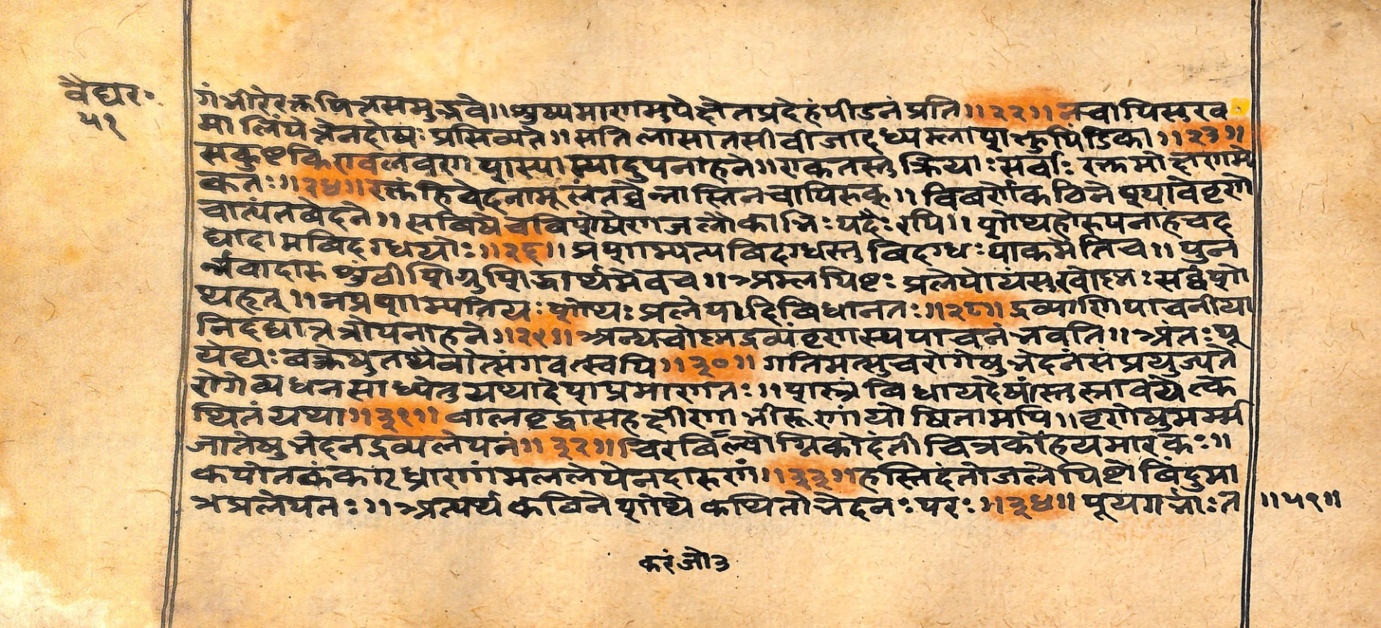 वैद्यर॰
५१
गंभीरेरक्तपित्तसमुद्भवे॥शुष्यमाणमुपेक्षेतप्रदेहंपीडनंप्रति॥२२॥नचापिमुख
मालिंपेत्तेनदोषःप्रसिच्यते॥सतिलासातसीवीजादध्यम्लाशक्तुपिंडिका॥२३॥
सकुष्टकिण्वलवणाशस्यास्यादुपनाहने॥एकतस्तुक्रियाःसर्वाःरक्तमोक्षणमे
कतः॥२४॥रक्तंहिवेदनामूलतच्चेन्नास्तिनचापिरुक्॥विवर्णेकठिनेश्यावेवृणे
चात्यंतवेदने॥सविषेचविशेषेणजलौकाभिःपदैःरपि॥शोथहोरुपनाहंचद
द्यादामविदग्धयोः॥२६॥प्रशाम्यत्यविदग्धस्तुविदग्धःपाकमेतिच॥पुन
र्न्नवादारुशुंठीशिग्रुशिद्धार्थमेवच॥अम्लपिष्टःप्रलेपोयंसुखोष्णःसर्वशो
थहृत्॥नप्रशाम्यतियःशोथःप्रलेपादिविधानतः॥२८॥द्रव्याणिपाचनीया
निदद्यात्तत्रोपनाहने॥२९॥अन्यचोष्णद्रव्यंवृणस्यपाचनंभवति॥अंतःपू
येद्यःवक्त्रेषुतथैवोत्संगवत्स्वपि॥३०॥गतिमत्सुचरोगेषुभेदनंसंप्रयुज्यते
रोगेव्यधनसाध्येतुयथादेशप्रमाणतः॥शस्त्रंविधायदोषांस्तुस्रावयेत्क
थितंयथा॥३१॥वालवृद्धासहक्षीणभीरूणांयोषितामपि॥वृणेषुमर्म्म
जातेषुभेदनंद्रव्यलेपनं॥३२॥चिरविल्वोग्निकोदंतीचित्रकोहयमारकः॥
कपोतकंकगृध्राणांमललेपेनदारुणं॥३३॥हस्तिदंतोजलेपिष्टोविंदुमा
त्रप्रलेपतः॥अत्यर्थकठिनेशोथेकथितोभेदनःपरः॥३४॥पूयगर्भाःत
॥५१॥
करंजो३